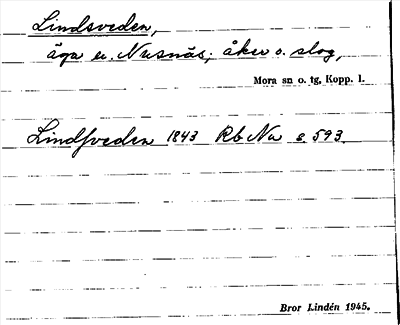 Lindsveden,
äga ä. Nusnäs; åker o. slog,
Mora sn o. tg, Kopp. l.
Lindsveden 1843 Rb Nu s. 593.
Bror Lindén 1945.